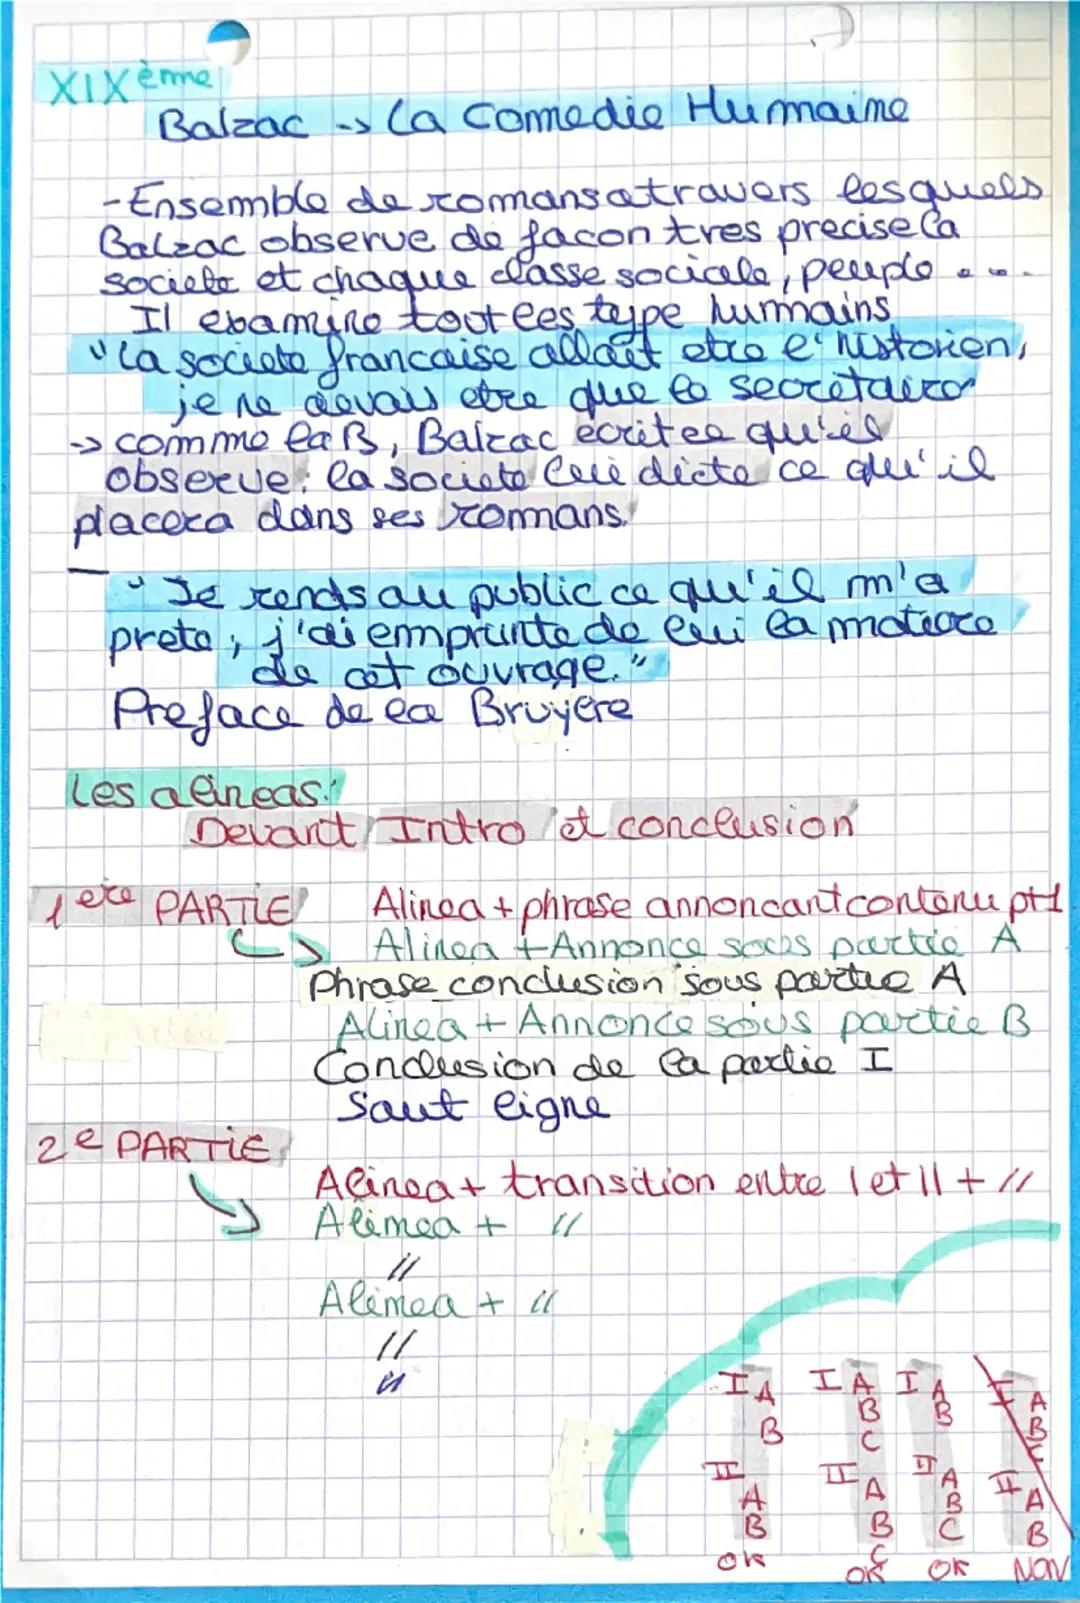 XIXème
Balzac -> La Comedie Humaine
-Ensemble de romans a travers lesquels
Balzac observe de facon tres precise la
societe et chaque classe sociale, peuple ....
Il examine tout les type humains
"La societe francaise allait etre l'historien,
je ne devais etre que le secretaire
-> comme la B, Balzac ecrit ce qu'il
observe: la societe lui dicte ce qu'il
placera dans ses romans.
"Je rends au public ce qu'il m'a
prete; j'ai emprunte de lui la matiere
de cet ouvrage."
Preface de la Bruyere
Les alineas:
Devant Intro et conclusion
1ere PARTIE Alinea + phrase annoncant contenu pt1
Alinea + Annonce sous partie A
Phrase conclusion sous partie A
Alinea + Annonce sous partie B
Conclusion de la partie I
Saut ligne
2e PARTIE
Alinea + transition entre I et II + //
Alinea + //
//
Alinea + //
//
//
I A I A I A I A
B B B B
C C
II A II A II A II A
B B B B
C C
OK OK OK NON